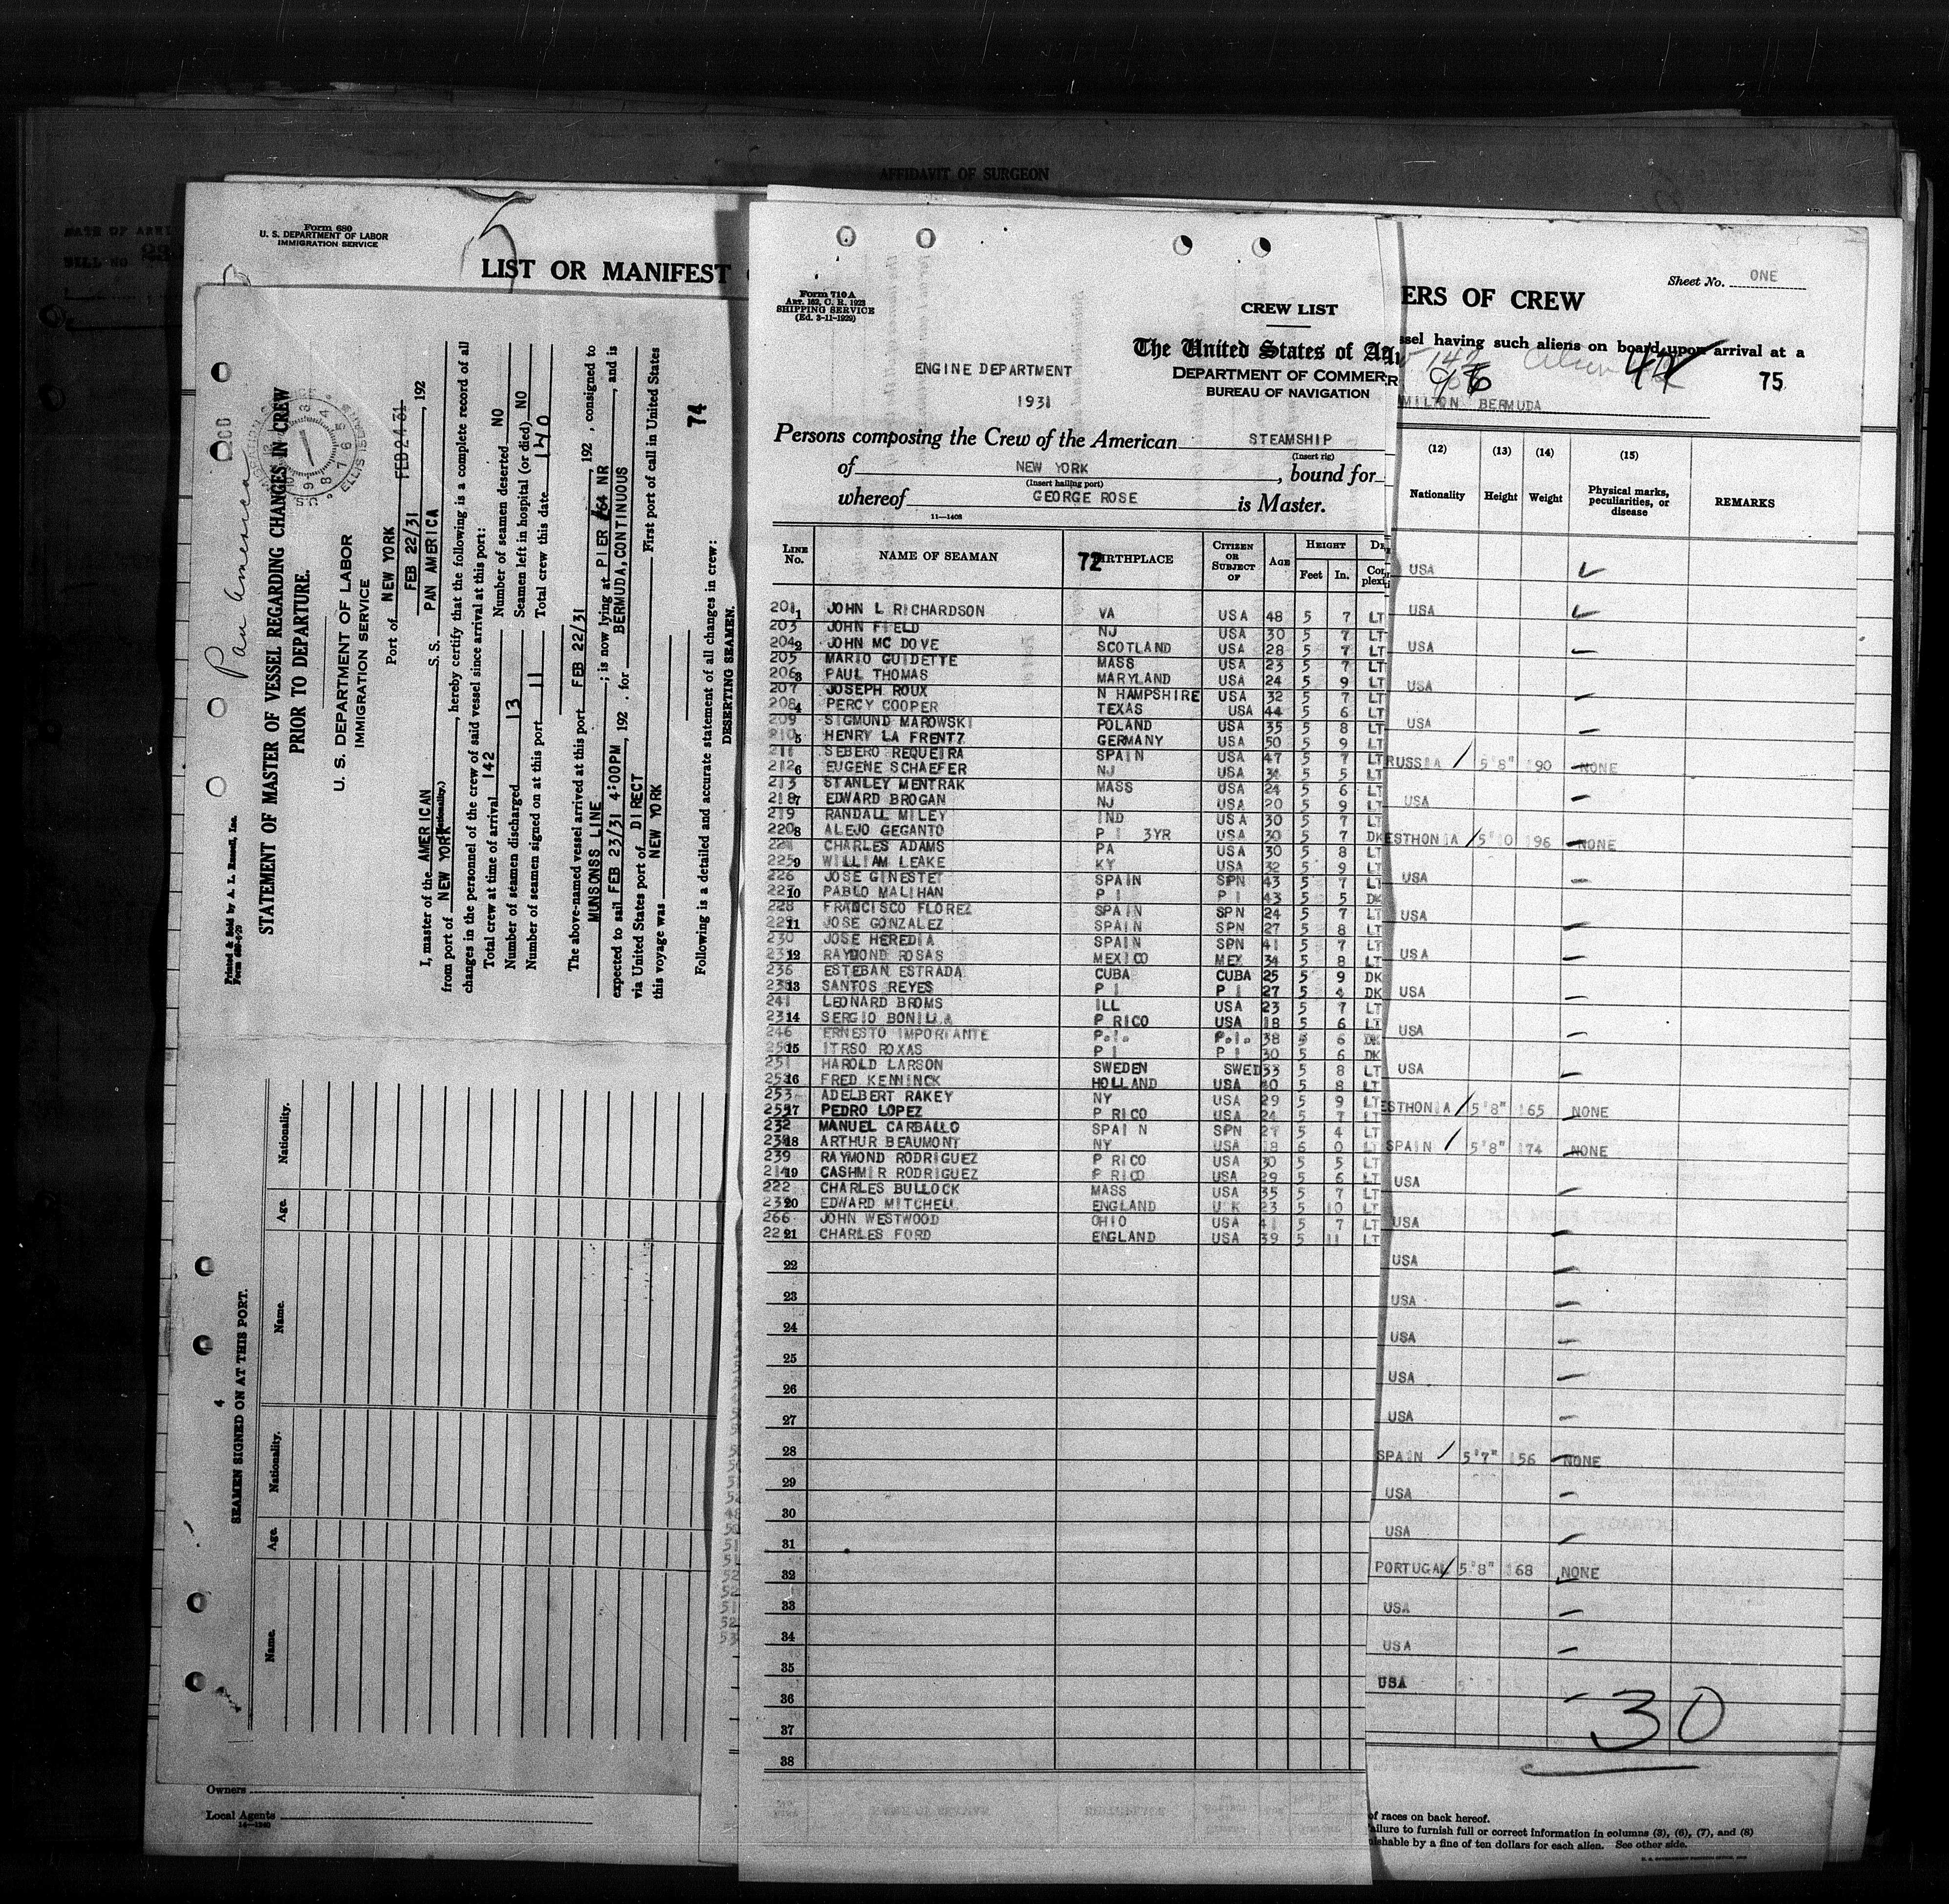 AFFIDAVIT OF SURGEON
Form 680
U. S. DEPARTMENT OF LABOR
IMMIGRATION SERVICE
LIST OR MANIFEST
Pan American
Printed & Sold by A. L. Russell, Inc.
STATEMENT OF MASTER OF VESSEL REGARDING CHANGES IN CREW
PRIOR TO DEPARTURE.
U. S. DEPARTMENT OF LABOR
IMMIGRATION SERVICE
Port of NEW YORK
FEB 24 31
FEB 22/31, 192
I, master of the AMERICAN S. S. PAN AMERICA
from port of NEW YORK, hereby certify that the following is a complete record of all
changes in the personnel of the crew of said vessel since arrival at this port:
Total crew at time of arrival 142 Number of seamen deserted NO
Number of seamen discharged 13 Seamen left in hospital (or died) NO
Number of seamen signed on at this port 11 Total crew this date 140
The above-named vessel arrived at this port FEB 22/31, 192 , consigned to
MUNSONSS LINE; is now lying at PIER 64 NR, and is
expected to sail FEB 23/31 4:00PM, 192 . for BERMUDA,CONTINUOUS
via United States port of DIRECT First port of call in United States
this voyage was NEW YORK
Following is a detailed and accurate statement of all changes in crew:
DESERTING SEAMEN.
74
SEAMEN SIGNED ON AT THIS PORT.
4
Name. Age. Nationality. Name. Age. Nationality.
Owners
Local Agents
Form 710 A
Art. 162, C. R. 1923
SHIPPING SERVICE
(Ed. 3-11-1929)
CREW LIST
The United States of
DEPARTMENT OF
BUREAU OF NAVIGATION
ENGINE DEPARTMENT
1931
Persons composing the Crew of the American STEAMSHIP
(Insert rig)
of NEW YORK, bound for
(Insert hailing port)
whereof GEORGE ROSE is Master.
11—1408
LINE No. NAME OF SEAMAN 72 BIRTHPLACE CITIZEN OR SUBJECT OF AGE HEIGHT Feet In.
201 1 JOHN L RICHARDSON VA USA 48 5 7 LT
203 JOHN FIELD NJ USA 30 5 7 LT
204 2 JOHN MC DOVE SCOTLAND USA 28 5 7 LT
205 MARIO GUIDETTE MASS USA 23 5 7 LT
206 3 PAUL THOMAS MARYLAND USA 24 5 9 LT
207 JOSEPH ROUX N HAMPSHIRE USA 32 5 7 LT
208 4 PERCY COOPER TEXAS USA 44 5 6 LT
209 SIGMUND MAROWSKI POLAND USA 35 5 8 LT
210 5 HENRY LA FRENTZ GERMANY USA 50 5 9 LT
211 SEBERO REQUEIRA SPAIN USA 47 5 7 LT
212 6 EUGENE SCHAEFER NJ USA 34 5 5 LT
213 STANLEY MENTRAK MASS USA 24 5 6 LT
218 7 EDWARD BROGAN NJ USA 20 5 9 LT
219 RANDALL MILEY IND USA 30 5 7 LT
220 8 ALEJO GEGANTO P I 3YR USA 30 5 7 DK
CHARLES ADAMS PA USA 30 5 8 LT
225 9 WILLIAM LEAKE KY USA 32 5 9 LT
226 JOSE GINESTET SPAIN SPN 43 5 7 LT
227 10 PABLO MALIHAN P I P I 43 5 5 DK
228 FRANCISCO FLOREZ SPAIN SPN 24 5 7 LT
11 JOSE GONZALEZ SPAIN SPN 27 5 8 LT
230 JOSE HEREDIA SPAIN SPN 41 5 7 LT
12 RAYMOND ROSAS MEXICO MEX 34 5 8 LT
236 ESTEBAN ESTRADA CUBA CUBA 25 5 9 DK
13 SANTOS REYES P I P I 27 5 4 DK
241 LEONARD BROMS ILL USA 23 5 7 LT
14 SERGIO BONILLA P RICO USA 18 5 6 LT
246 ERNESTO IMPORTANTE P.I. P.I. 38 5 6 DK
15 ITRSO ROXAS P I P I 30 5 6 DK
251 HAROLD LARSON SWEDEN SWED 33 5 8 LT
16 FRED KENNINCK HOLLAND USA 40 5 8 LT
253 ADELBERT RAKEY NY USA 29 5 9 LT
17 PEDRO LOPEZ P RICO USA 24 5 7 LT
232 MANUEL CARBALLO SPAIN SPN 27 5 4 LT
18 ARTHUR BEAUMONT NY USA 18 6 0 LT
239 RAYMOND RODRIGUEZ P RICO USA 30 5 5 LT
19 CASHMIR RODRIGUEZ P RICO USA 29 5 6 LT
222 CHARLES BULLOCK MASS USA 35 5 7 LT
20 EDWARD MITCHELL ENGLAND U K 23 5 10 LT
266 JOHN WESTWOOD OHIO USA 41 5 7 LT
21 CHARLES FORD ENGLAND USA 39 5 11 LT
22
23
24
25
26
27
28
29
30
31
32
33
34
35
36
37
38
Sheet No. ONE
ERS OF CREW
ssel having such aliens on board upon arrival at a
75
MILTON BERMUDA
(12) (13) (14) (15)
Nationality Height Weight Physical marks, peculiarities, or disease REMARKS
USA
USA
USA
USA
USA
RUSSIA 5'8" 190 NONE
USA
ESTHONIA 5'10 196 NONE
USA
USA
USA
USA
USA
USA
ESTHONIA 5'8" 165 NONE
SPAIN 5'8" 174 NONE
USA
USA
USA
USA
USA
USA
USA
SPAIN 5'7" 156 NONE
USA
USA
PORTUGAL 5'8" 168 NONE
USA
USA
USA
30
of races on back hereof.
ailure to furnish full or correct information in columns (3), (6), (7), and (8)
nishable by a fine of ten dollars for each alien. See other side.